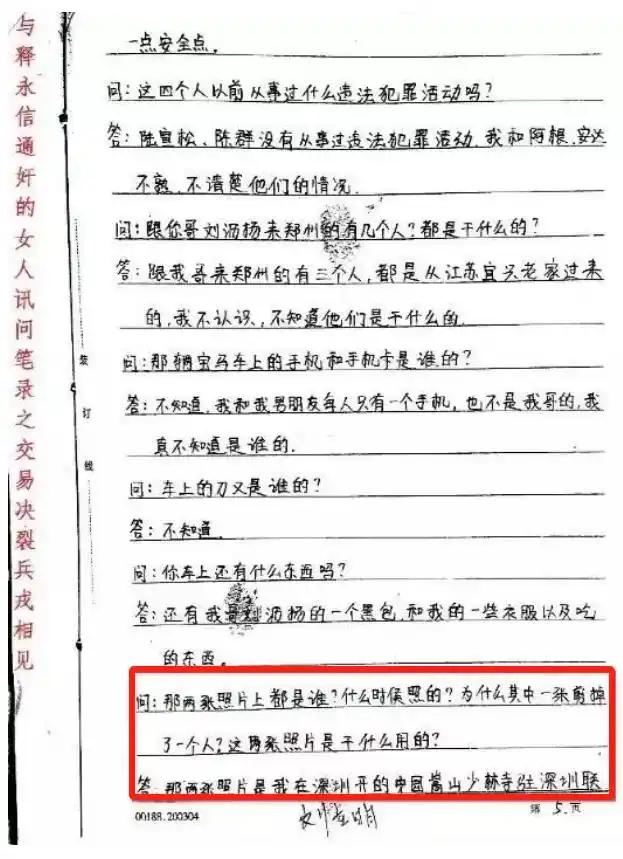 与释永信通奸的女人讯问笔录之交易决裂兵戎相见
一点安全点。
问:这四个人以前从事过什么违法犯罪活动吗?
答:陆宜松、陈群没有从事过违法犯罪活动,我和阿根、安达
不熟,不清楚他们的情况.
问:跟你哥刘沥扬来郑州的有几个人?都是干什么的?
答:跟我哥来郑州的有三个人,都是从江苏宜兴老家过来
的,我不认识,不知道他们是干什么的
问:那辆宝马车上的手机和手机卡是谁的?
答:不知道,我和我男朋友每人只有一个手机,也不是我哥的,我
真不知道是谁的.
问:车上的刀又是谁的?
答:不知道.
问:你车上还有什么东西吗?
答:还有我哥刘沥扬的一个黑包,和我的一些衣服以及吃
的东西。
问:那两张照片上都是谁?什么时候照的?为什么其中一张剪掉
了一个人?这两张照片是干什么用的?
答:那两张照片是我在深圳开的中国嵩山少林寺驻深圳联
装
订
线
00188.200304
第 5 页